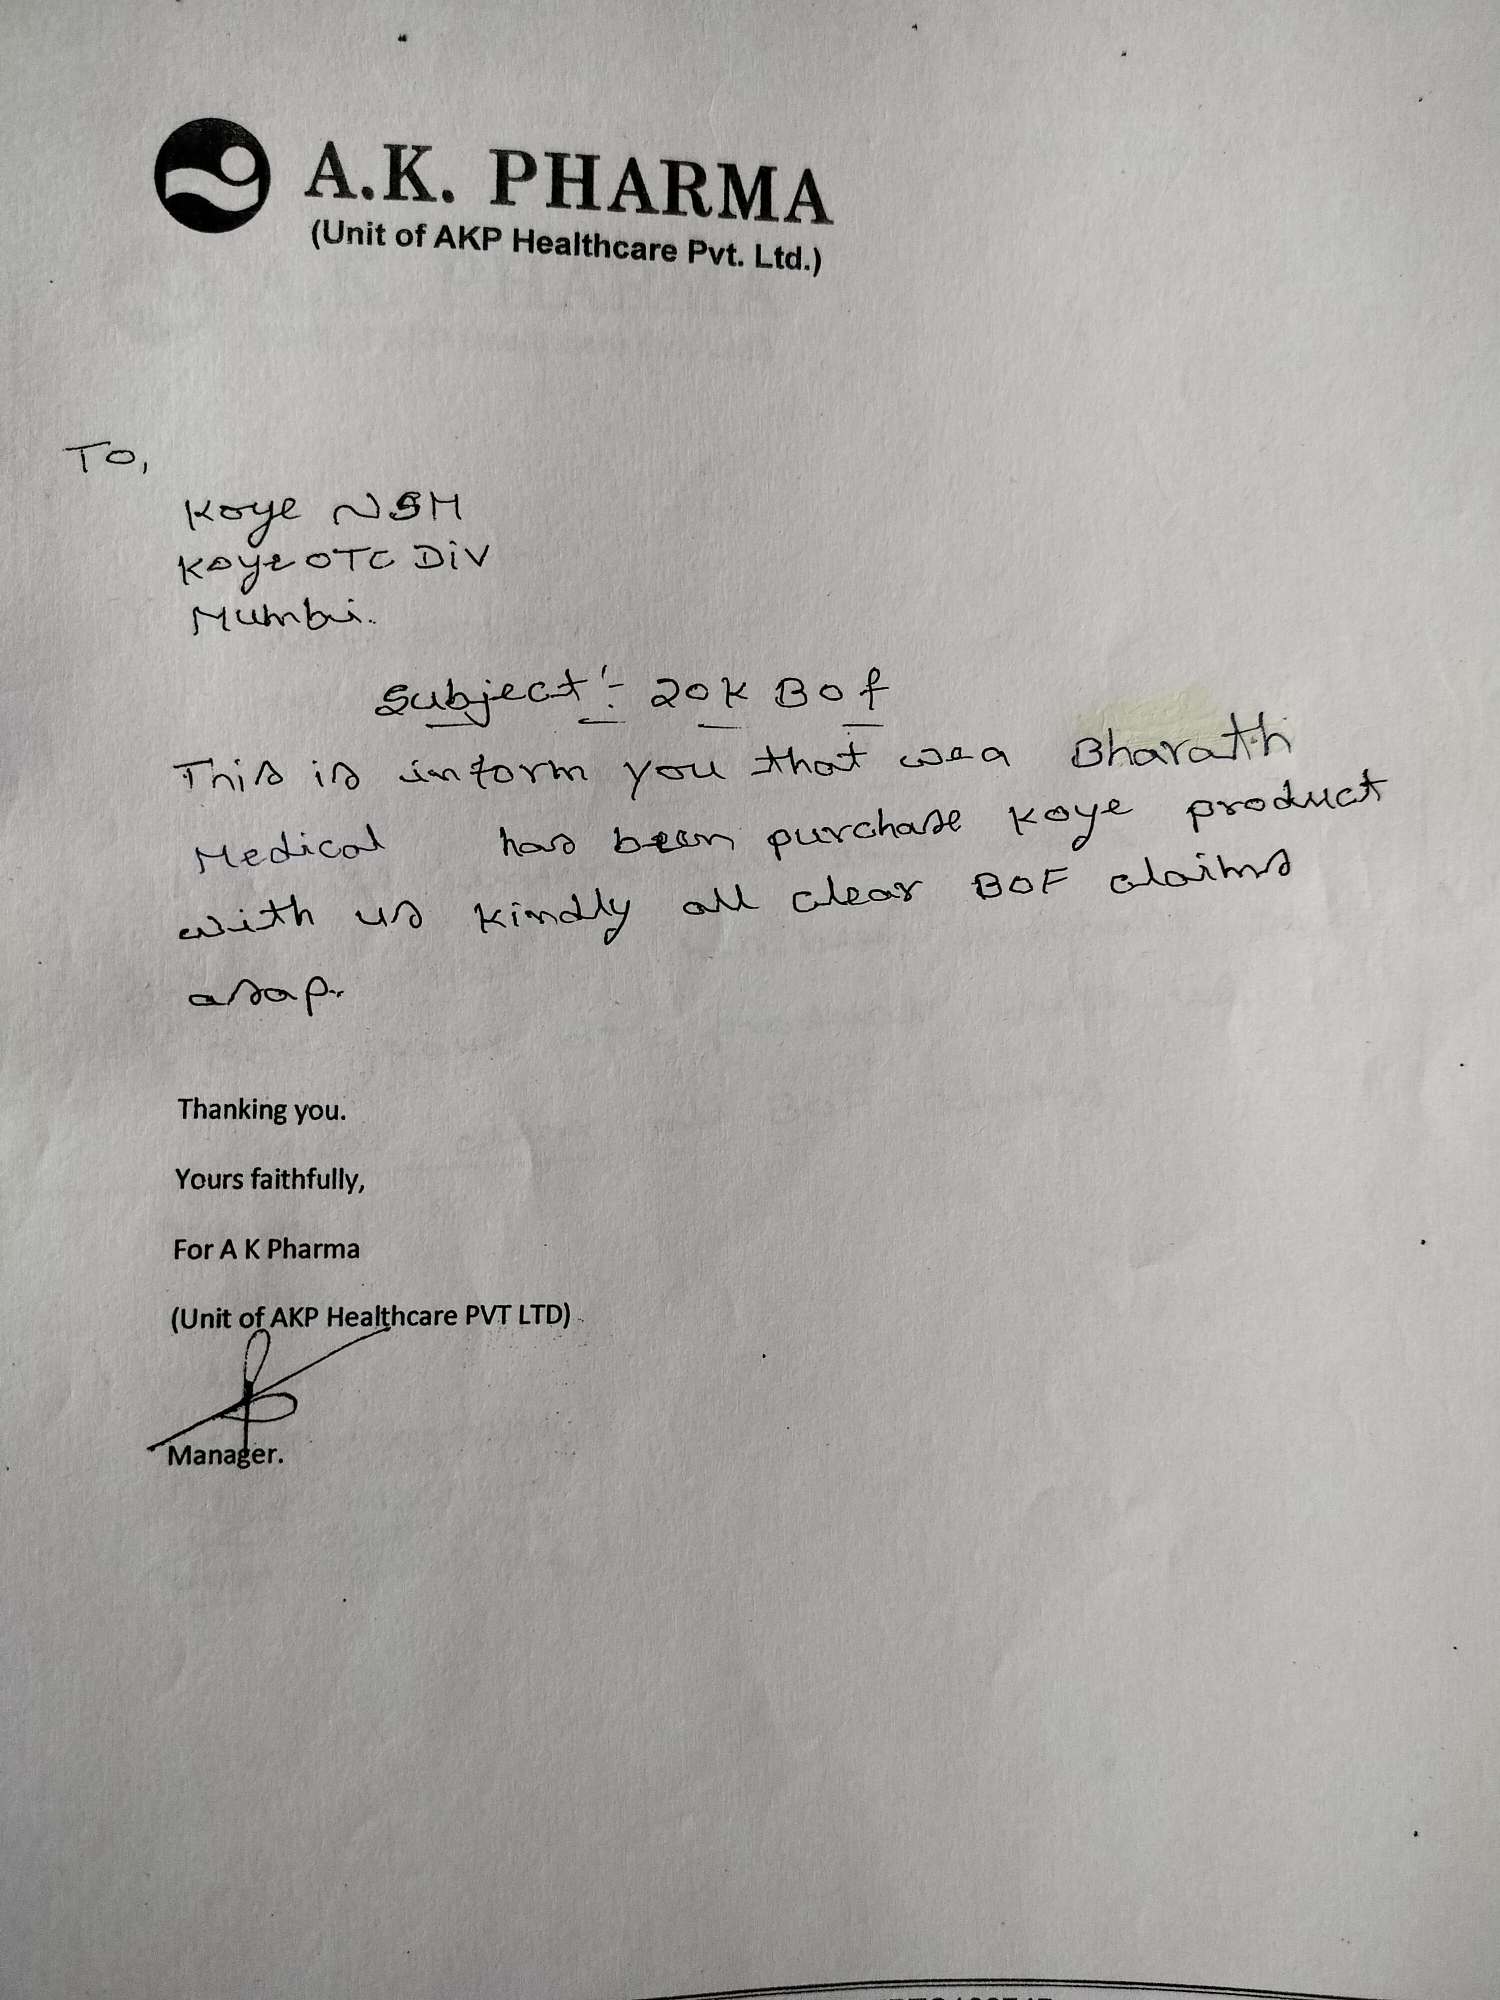 A.K. PHARMA
(Unit of AKP Healthcare Pvt. Ltd.)
To,
Koye NSM
Koye OTC Div
Mumbi.
Subject:- 20K Bof
This is inform you that wea Bharath
Medical has been purchase Koye product
with us kindly all clear BOF claims
asap.
Thanking you.
Yours faithfully,
For A K Pharma
(Unit of AKP Healthcare PVT LTD)
Manager.